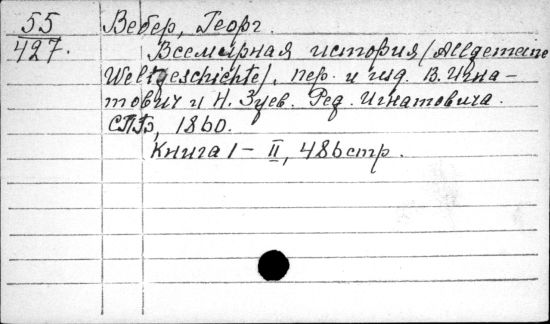 55 Вебер, Георг.
427. Всемирная история (Allgemeine
Weltgeschichte), пер. и изд. В. Игна-
тович и Н. Зуев. Ред. Игнатовича.
СПБ, 1860.
Книга I – II, 486 стр.